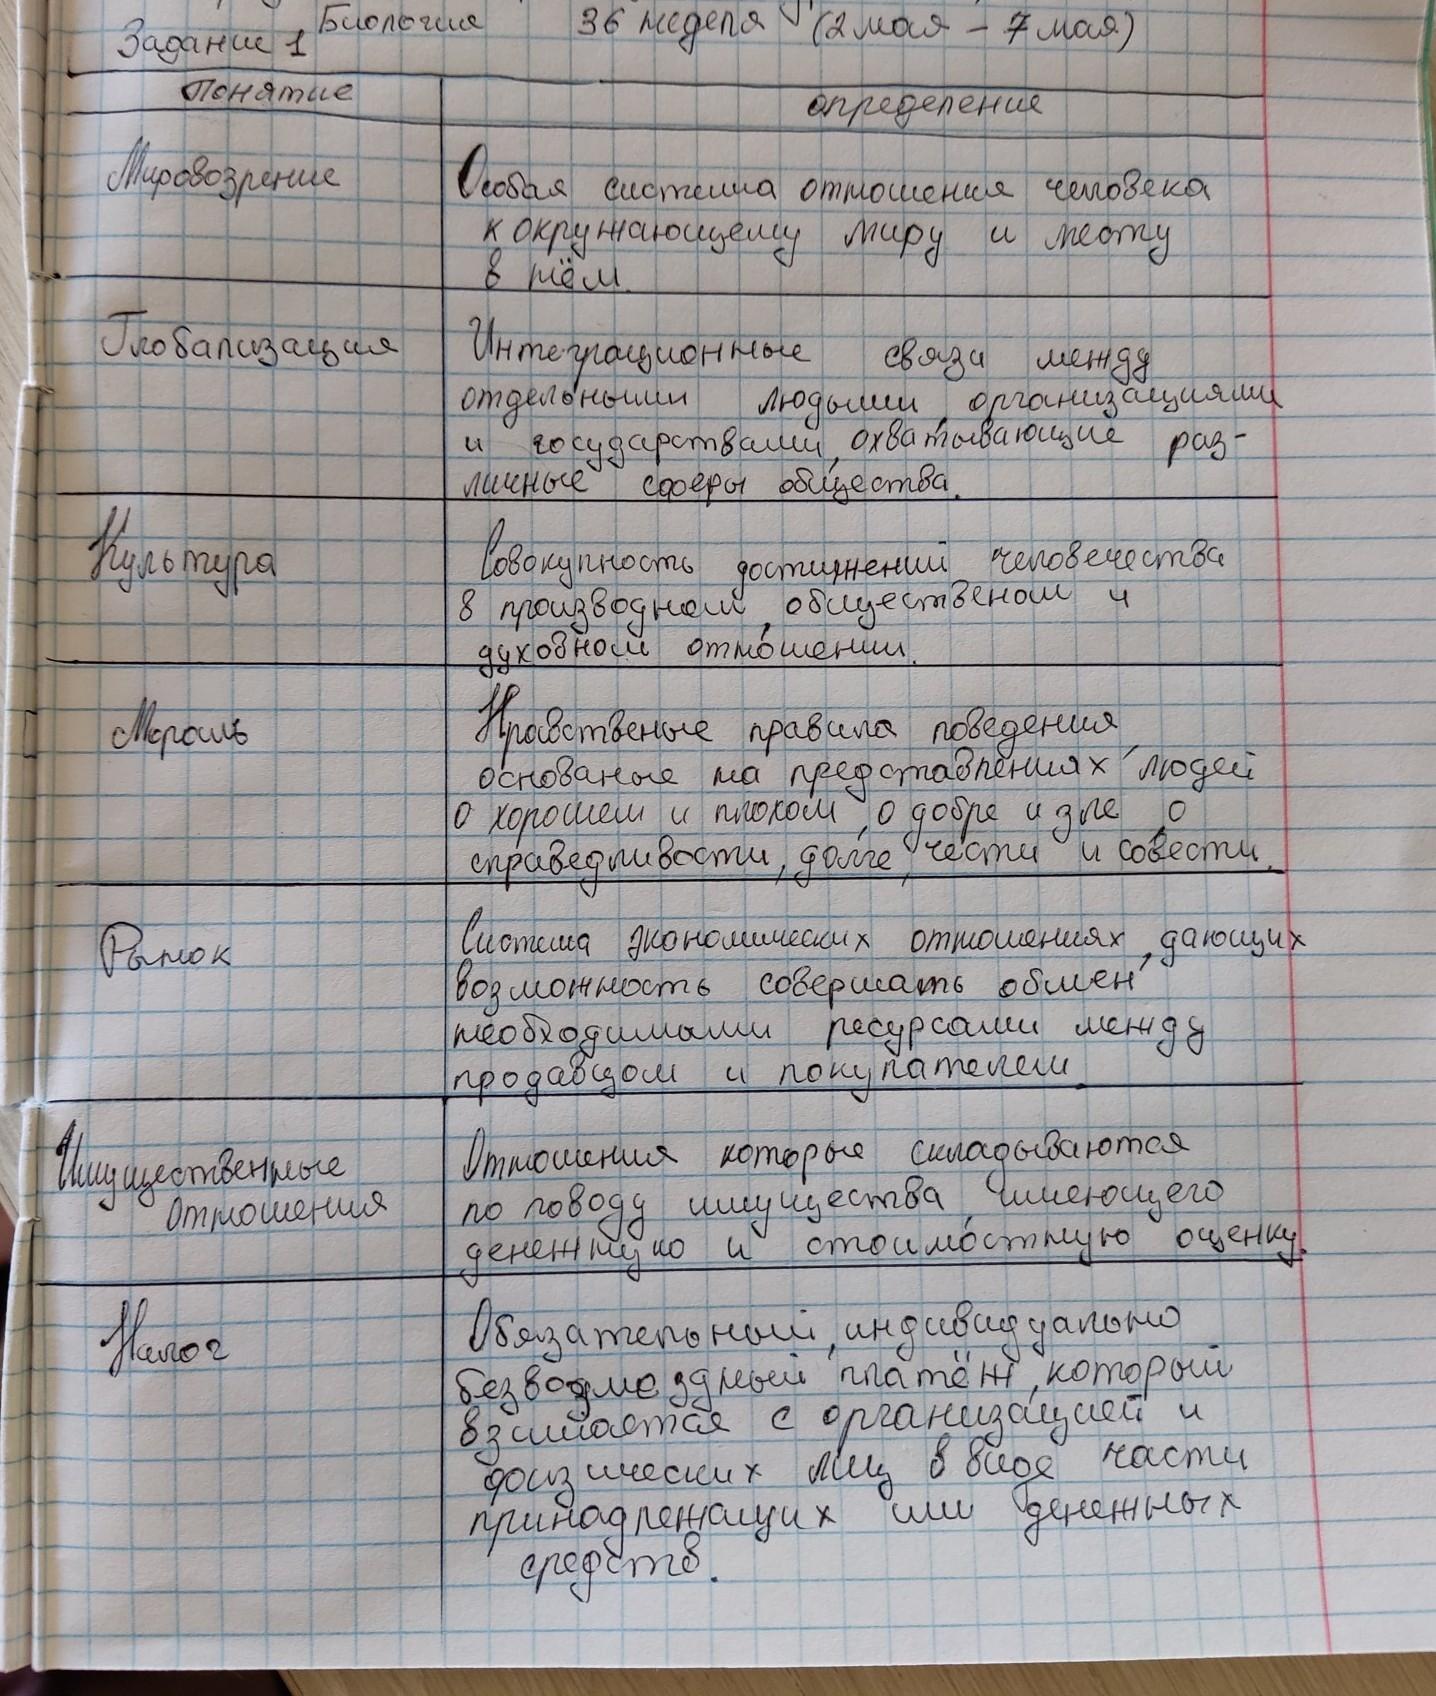 Биология 36 неделя (2 мая - 7 мая)
Задание 1
понятие
определение
Мировозрение
Особая система отношения человека
к окружающему миру и месту
в нём.
Глобализация
Интеграционные связи между
отдельными людьми, организациями
и государствами, охватывающие раз-
личные сферы общества.
Культура
Совокупность достижений человечества
в производном, общественом и
духовном отношении.
Мораль
Нравственые правила поведения,
основаные на представлениях людей
о хорошем и плохом, о добре и зле, о
справедливости, долге, чести и совести.
Рынок
Система экономических отношениях, дающих
возможность совершать обмен
необходимыми ресурсами между
продавцом и покупателем.
Имущественные
отношения
Отношения которые складываются
по поводу имущества, имеющего
денежную и стоимостную оценку.
Налог
Обязательный, индивидуально
безвозмездный платёж, который
взимается с организацией и
физических лиц в виде части
принадлежащих им денежных
средств.